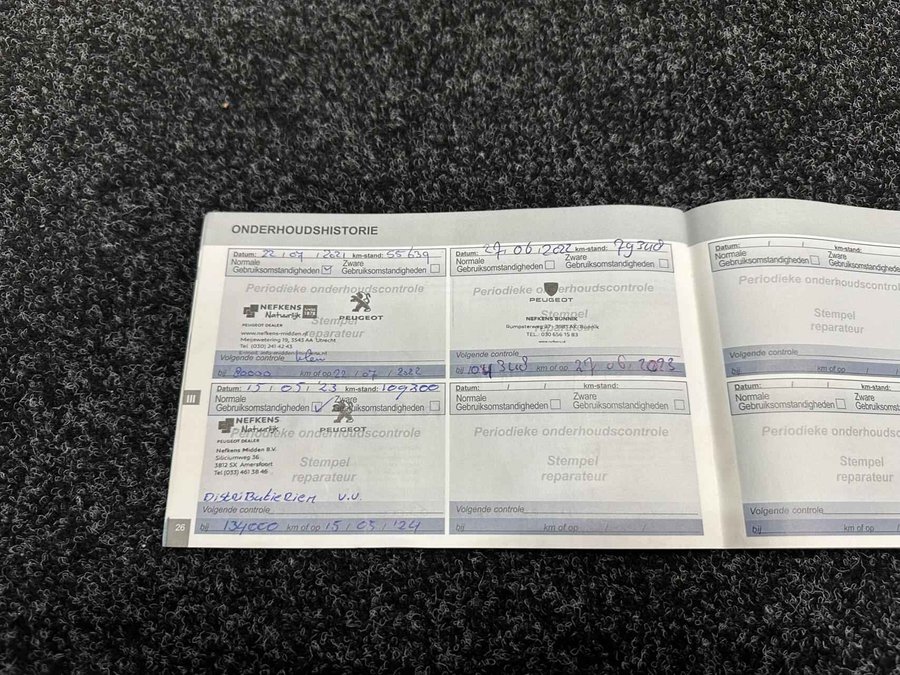 ONDERHOUDSHISTORIE
Datum: 22 / 07 / 2021 km-stand: 55639
Normale Zware
Gebruiksomstandigheden Gebruiksomstandigheden
Periodieke onderhoudscontrole
NEFKENS
Natuurlijk
PEUGEOT
Stempel
reparateur
PEUGEOT DEALER
www.nefkens-midden.nl
Meijewetering 19, 3543 AA Utrecht
Tel. (030) 241 42 43
Volgende controle
bij 80000 km of op 22 / 07 / 2022
Datum: 27 / 06 / 2022 km-stand: 79348
Normale Zware
Gebruiksomstandigheden Gebruiksomstandigheden
Periodieke onderhoudscontrole
PEUGEOT
Stempel
reparateur
NEFKENS BUNNIK
Rumpsterweg 27 - 3981 AK Bunnik
TEL. 030 656 15 83
Volgende controle
bij 104348 km of op 27 06 2023
Datum: / / km-stand:
Normale Zware
Gebruiksomstandigheden
Periodieke onderhoudscontrol
Stempel
reparateur
Volgende controle
bij km of op / /
Datum: 15 / 05 / 23 km-stand: 109300
Normale Zware
Gebruiksomstandigheden Gebruiksomstandigheden
Periodieke onderhoudscontrole
NEFKENS
Natuurlijk
PEUGEOT
PEUGEOT DEALER
Nefkens Midden B.V.
Siliciumweg 36
3812 SX Amersfoort
Tel (033) 461 38 46
Stempel
reparateur
Distributieriem v.v.
Volgende controle
bij 134000 km of op 15 / 05 / '24
Datum: / / km-stand:
Normale Zware
Gebruiksomstandigheden Gebruiksomstandigheden
Periodieke onderhoudscontrole
Stempel
reparateur
Volgende controle
bij km of op / /
Datum: / / km-stand:
Normale Zware
Gebruiksomstandigheden
Periodieke onderhoudsc
Stempel
reparateur
Volgende controle
bij km of op /
III
26